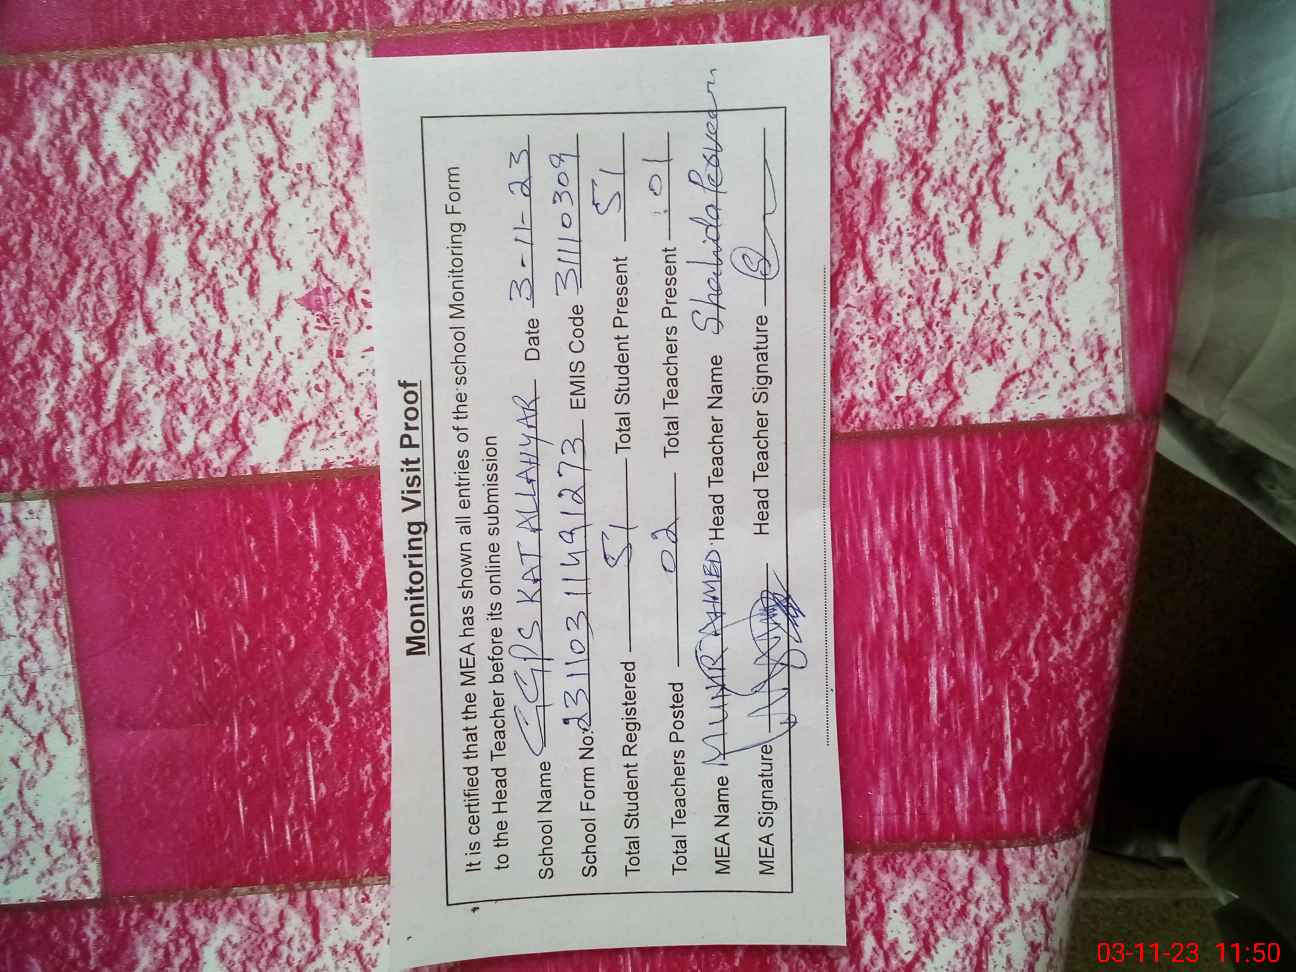 Monitoring Visit Proof
It is certified that the MEA has shown all entries of the school Monitoring Form
to the Head Teacher before its online submission
School Name GGPS KAT ALLAHYAR Date 3-11-23
School Form No: 23110311491273 EMIS Code 31110309
Total Student Registered 51 Total Student Present 51
Total Teachers Posted 02 Total Teachers Present 01
MEA Name MUNIR AHMED Head Teacher Name Shahida Parveen
MEA Signature Head Teacher Signature
03-11-23 11:50